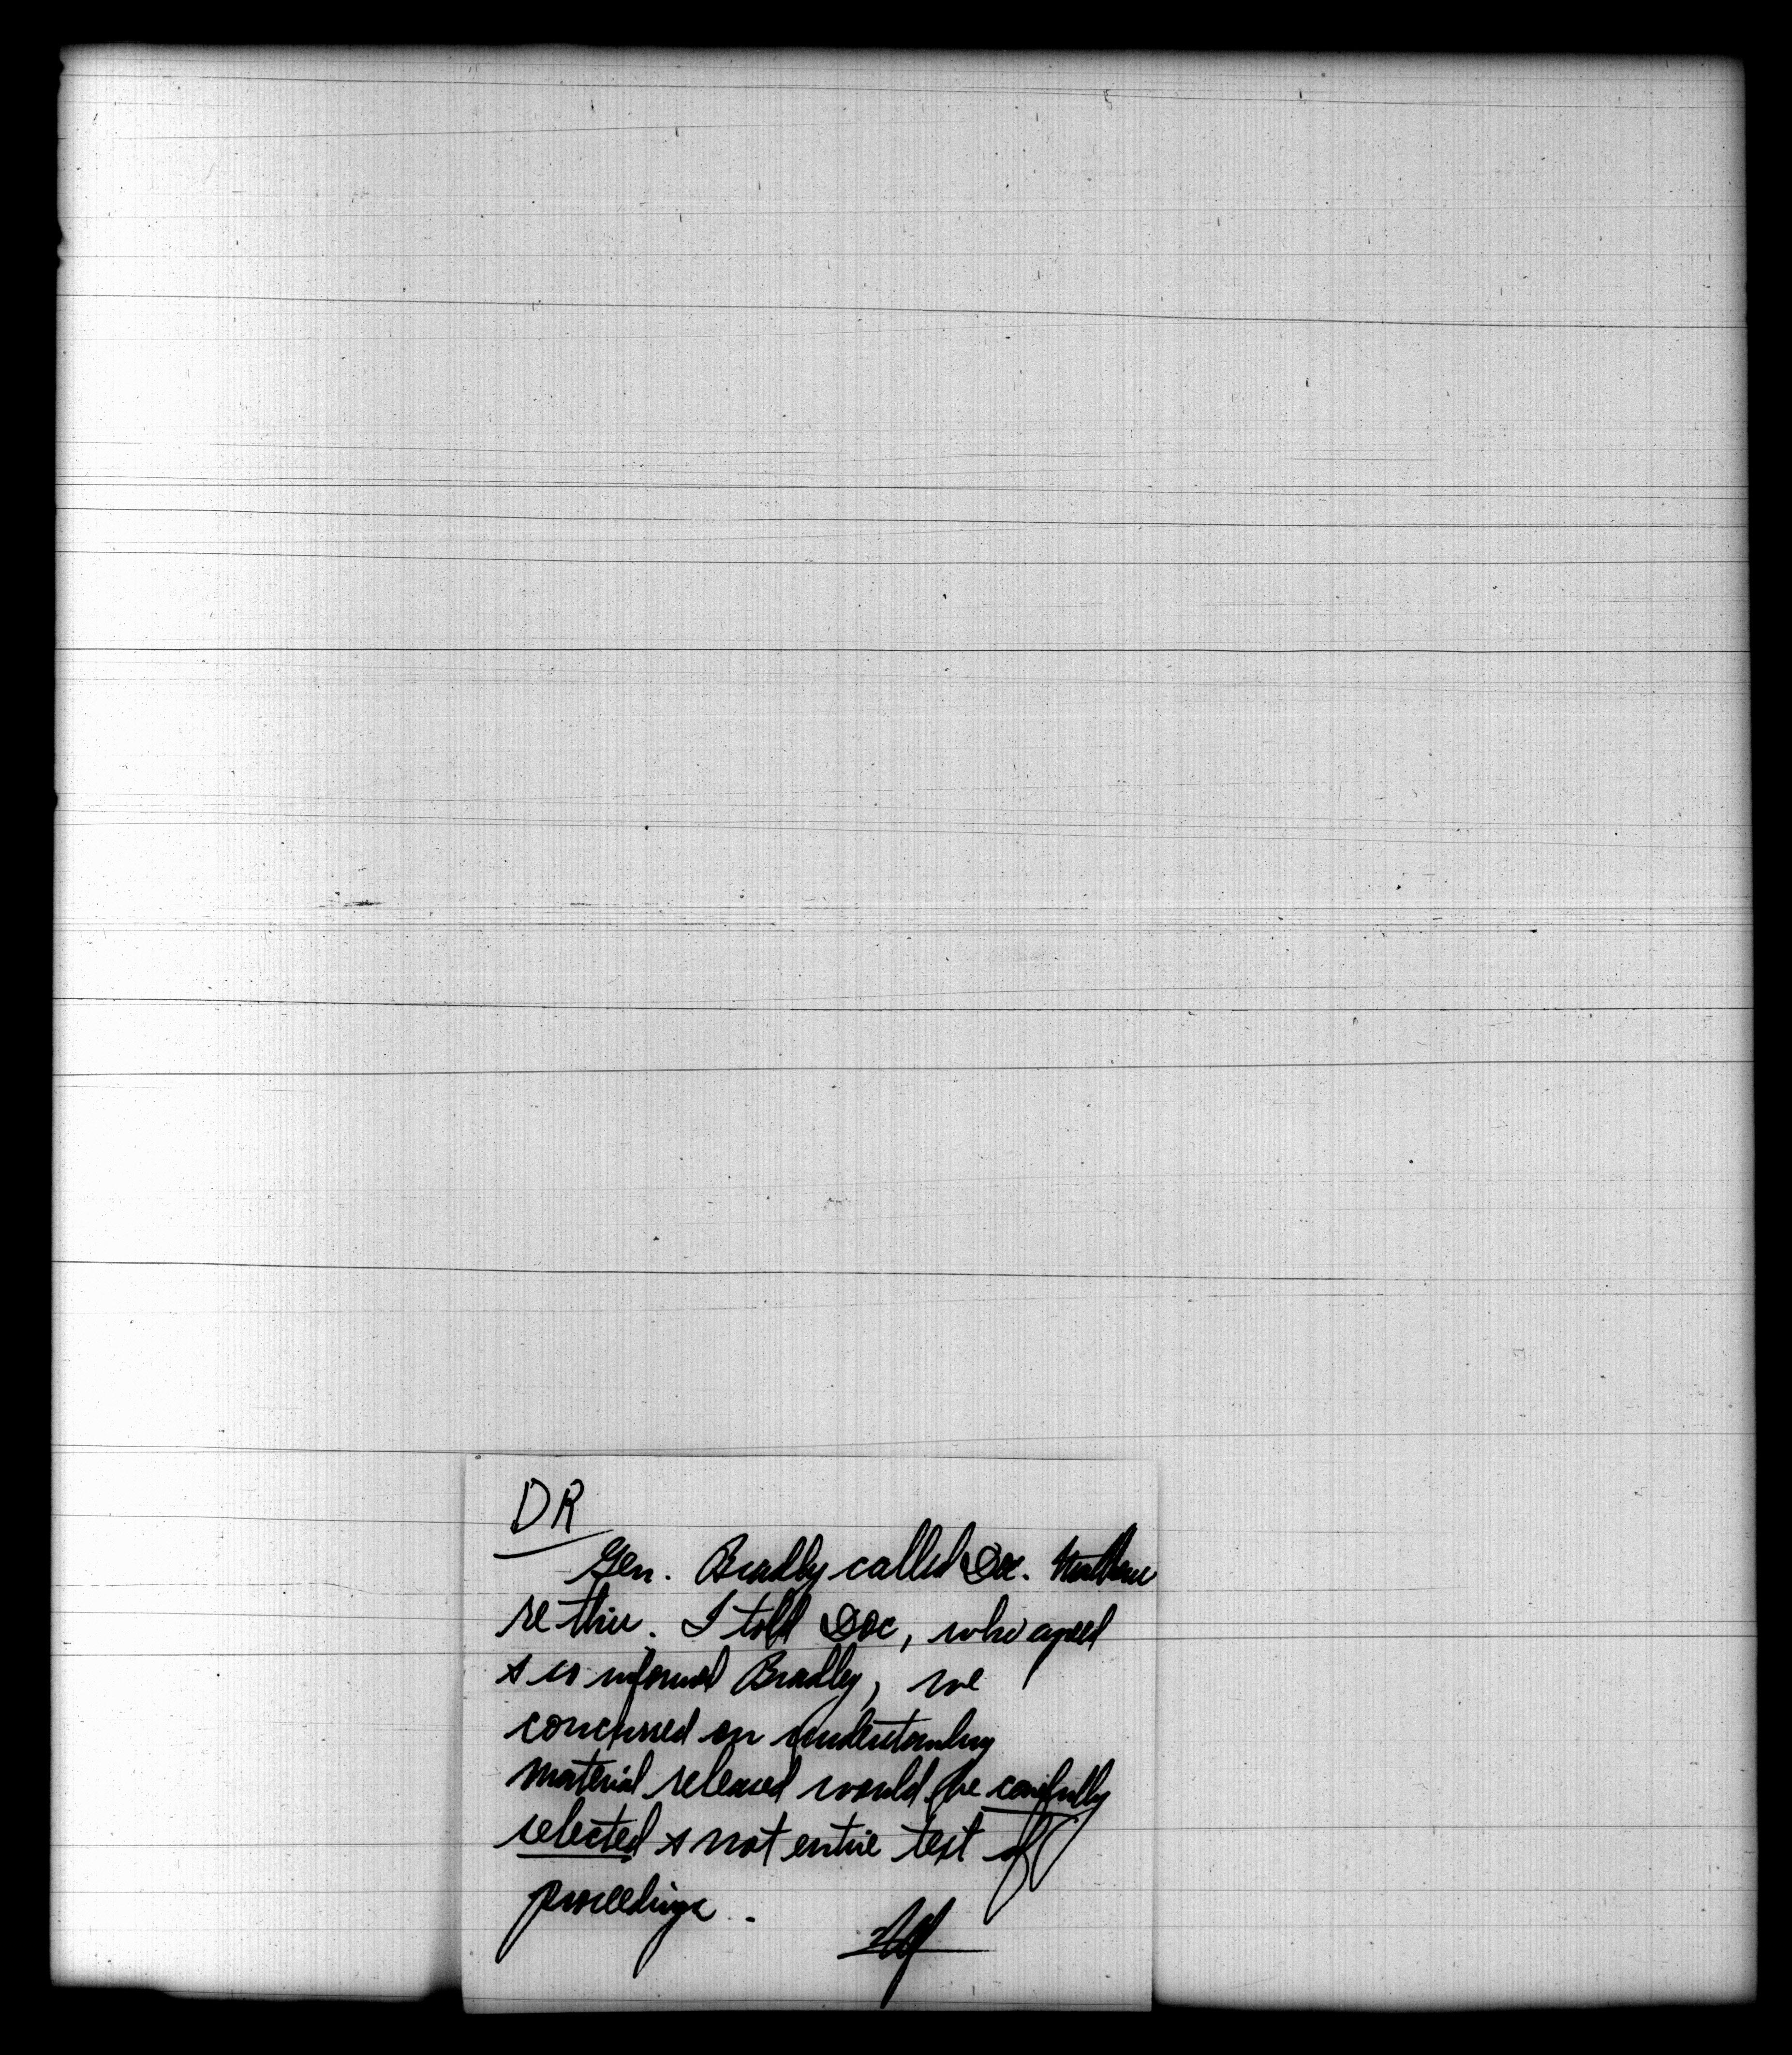 DR
Gen. Bradley called Doc. Matthews
re this. I told Doc, who agreed
& so informed Bradley, we
concurred on understanding
material released would be carefully
selected & not entire text of
proceedings.